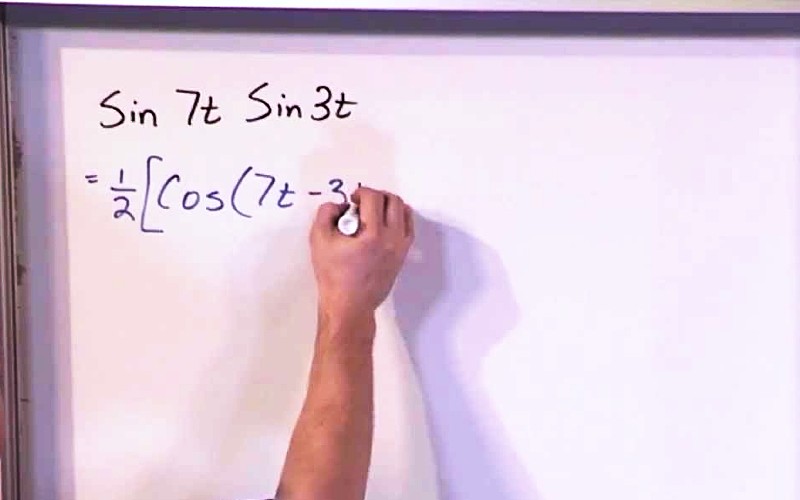 Sin 7t Sin 3t
= 1/2 [Cos(7t - 3